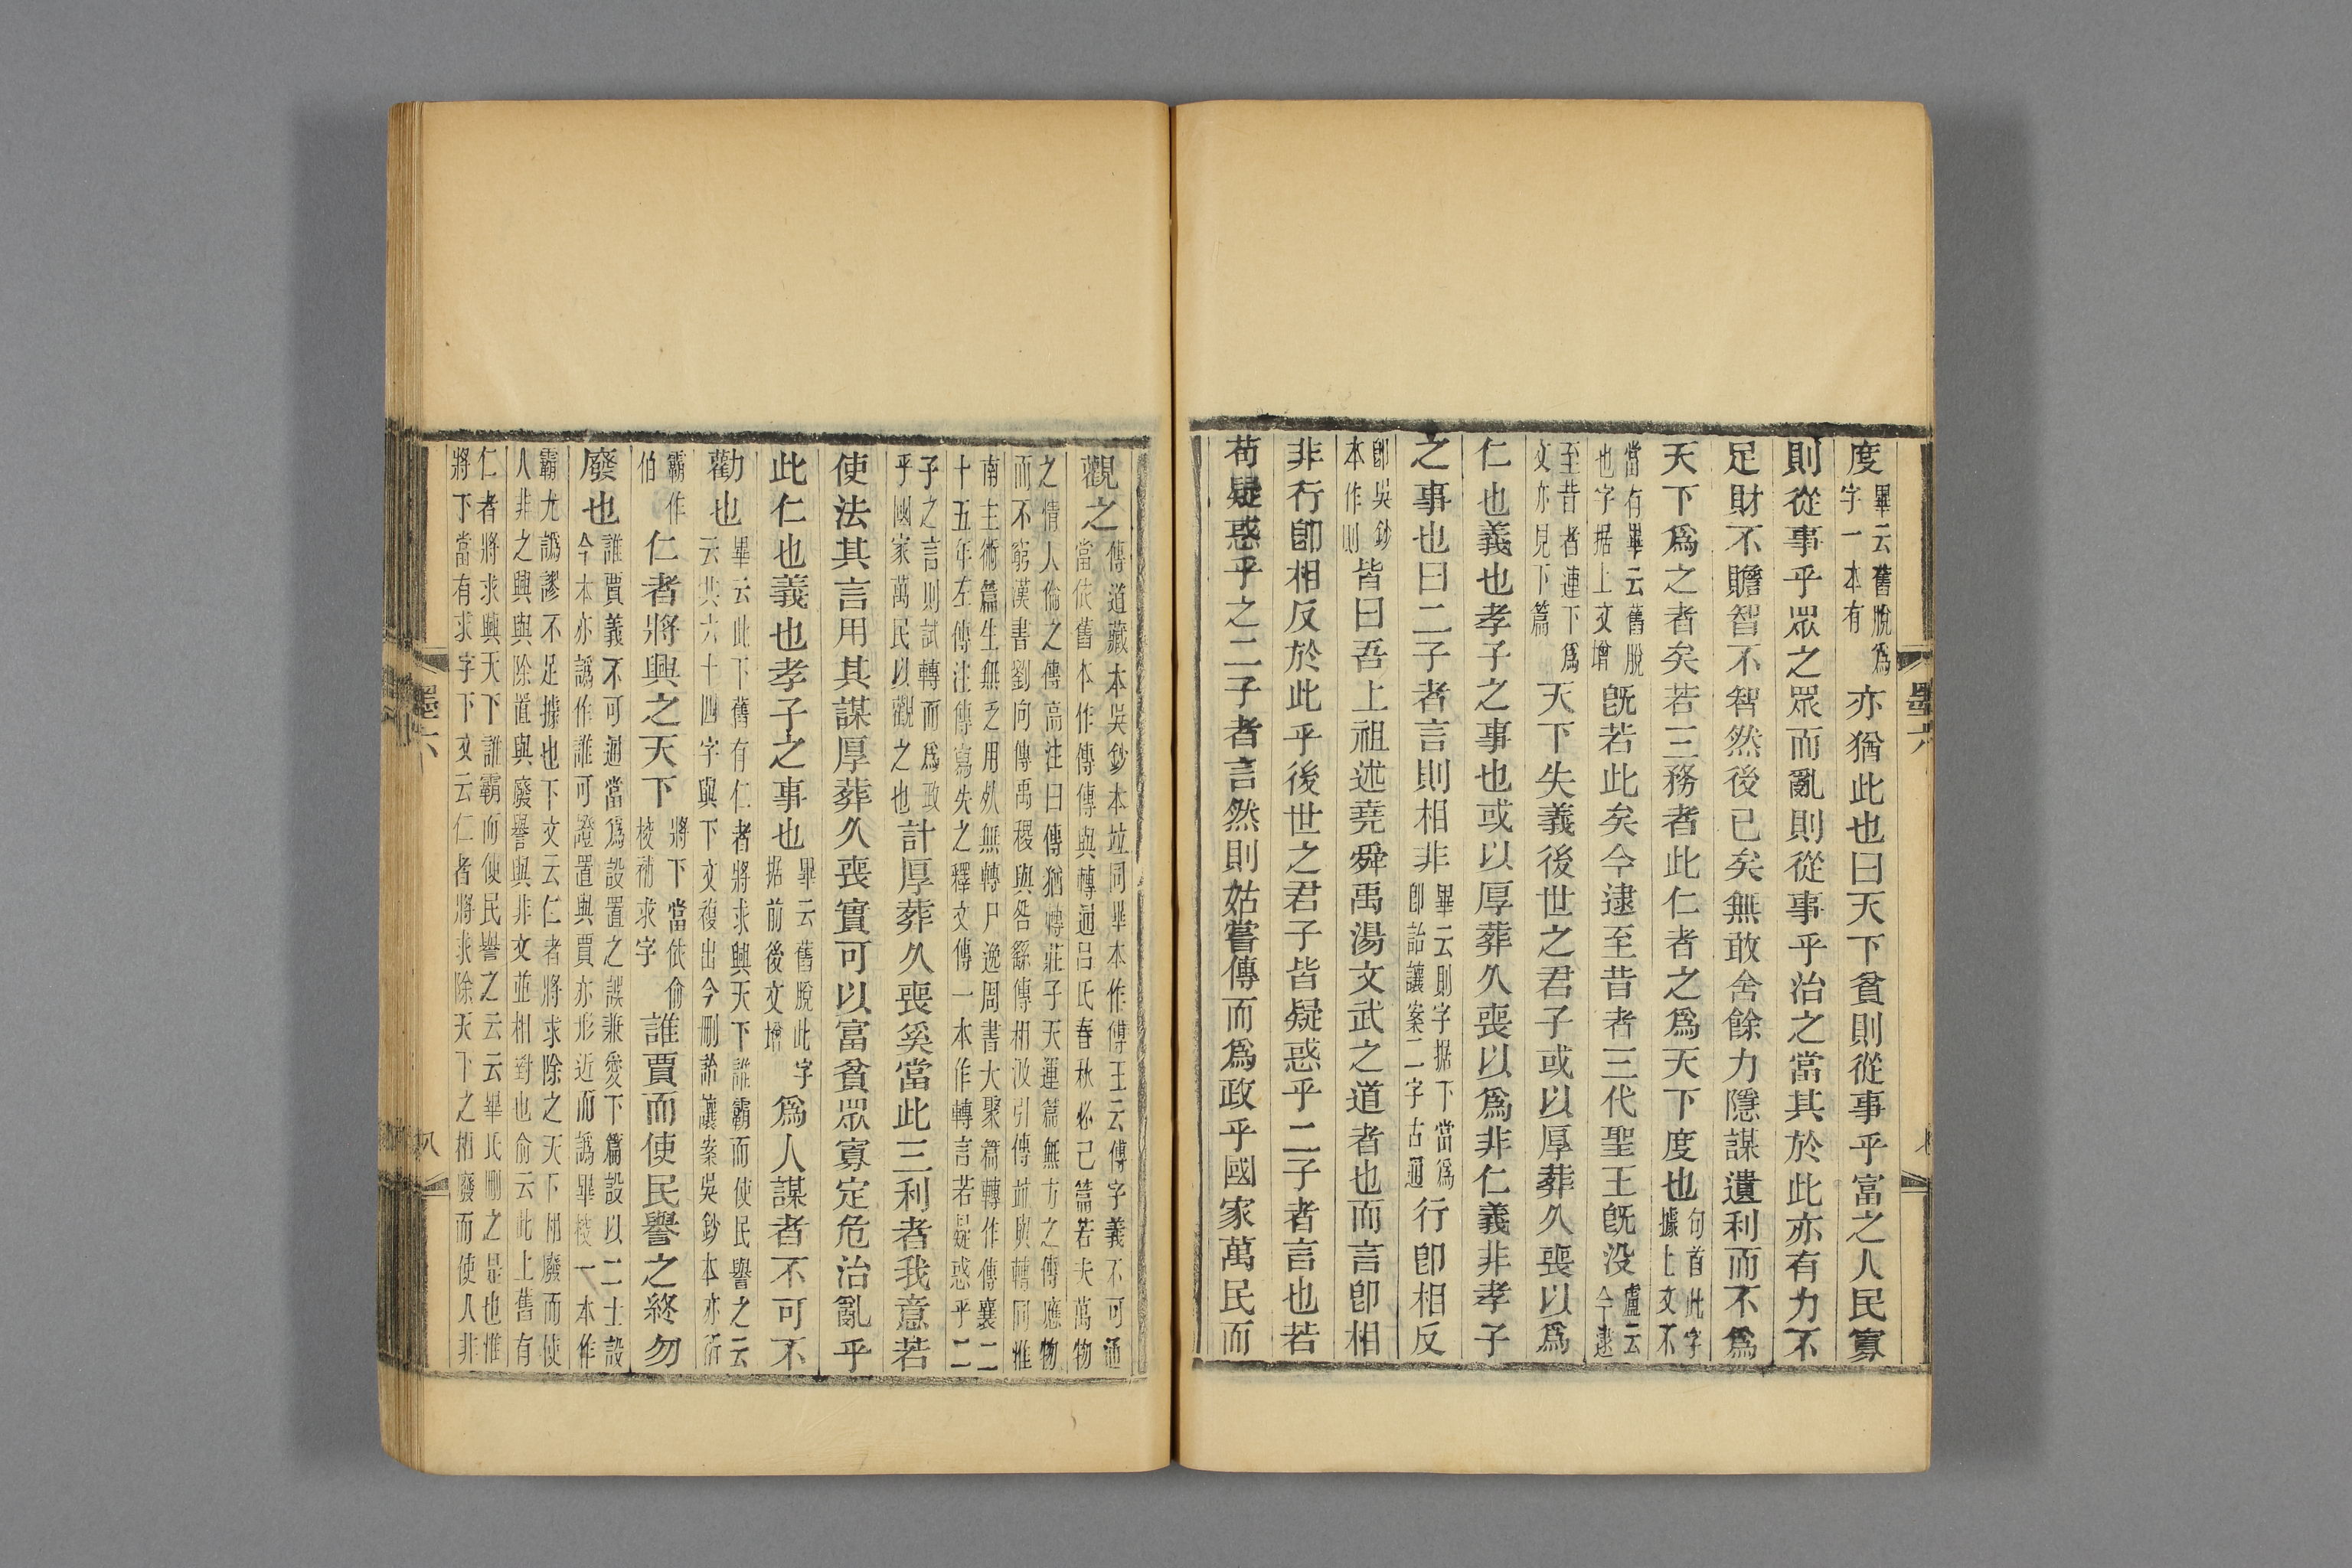 度畢云舊脫爲字一本有亦猶此也曰天下貧則從事乎富之人民寡
則從事乎眾之眾而亂則從事乎治之當其於此亦有力不
足財不贍智不智然後已矣無敢舍餘力隱謀遺利而不爲
天下爲之者矣若三務者此仁者之爲天下度也句首此字據上文不
當有畢云舊脫也字据上文增旣若此矣今逮至昔者三代聖王旣没盧云今逮
至昔者連下爲文亦見下篇天下失義後世之君子或以厚葬久喪以爲
仁也義也孝子之事也或以厚葬久喪以爲非仁義非孝子
之事也曰二子者言則相非畢云則字据下當爲卽詒讓案二字古通行卽相反
卽吳鈔本作則皆曰吾上祖述堯舜禹湯文武之道者也而言卽相
非行卽相反於此乎後世之君子皆疑惑乎二子者言也若
苟疑惑乎之二子者言然則姑嘗傳而爲政乎國家萬民而
墨六
觀之傳道藏本吳鈔本竝同畢本作傅王云傅字義不可通當依舊本作傳傳與轉通呂氏春秋必己篇若夫萬物
之情人倫之傳高注曰傳猶轉莊子天運篇無方之傳應物而不窮漢書劉向傳禹稷與咎繇傳相汲引傳竝與轉同淮
南主術篇生無乏用死無轉尸逸周書大聚篇轉作傳襄二十五年左傳注傳寫失之釋文傳一本作轉言若疑惑乎二
子之言則試轉而爲政乎國家萬民以觀之也計厚葬久喪奚當此三利者我意若
使法其言用其謀厚葬久喪實可以富貧眾寡定危治亂乎
此仁也義也孝子之事也畢云舊脫此字据前後文增爲人謀者不可不
勸也畢云此下舊有仁者將求興天下誰霸而使民譽之云云共六十四字與下文複出今刪詒讓案吳鈔本亦衍
霸作伯仁者將興之天下將下當依俞校補求字誰賈而使民譽之終勿
廢也誰賈義不可通當爲設置之誤兼愛下篇設以二士設今本亦譌作誰可證置與賈亦形近而譌畢校一本作
霸尤譌謬不足據也下文云仁者將求除之天下相廢而使人非之興與除置與廢譽與非文並相對也俞云此上舊有
仁者將求興天下誰霸而使民譽之云云畢氏刪之是也惟將下當有求字下文云仁者將求除天下之相廢而使人非
墨六
八